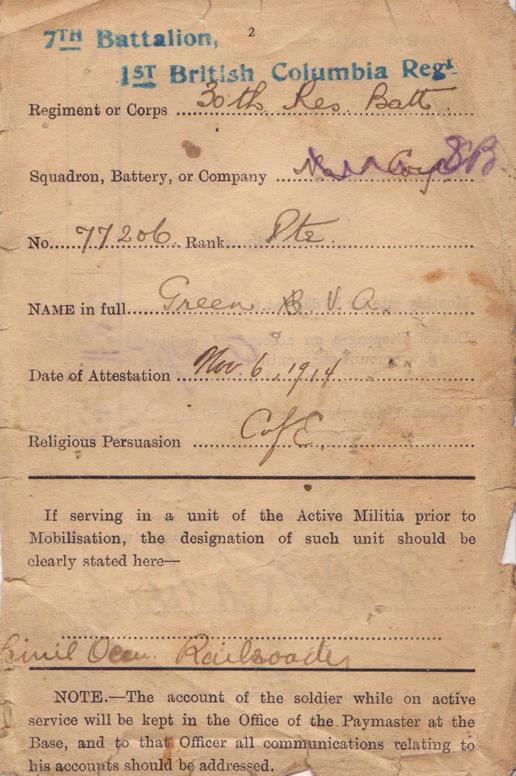 2
7TH Battalion,
1ST British Columbia Regt
Regiment or Corps 30th Res. Batt
Squadron, Battery, or Company
No. 77206 Rank Pte
NAME in full Green B. V. A.
Date of Attestation Nov. 6, 1914
Religious Persuasion C of E.
If serving in a unit of the Active Militia prior to
Mobilisation, the designation of such unit should be
clearly stated here—
Railroader
NOTE.—The account of the soldier while on active
service will be kept in the Office of the Paymaster at the
Base, and to that Officer all communications relating to
his accounts should be addressed.